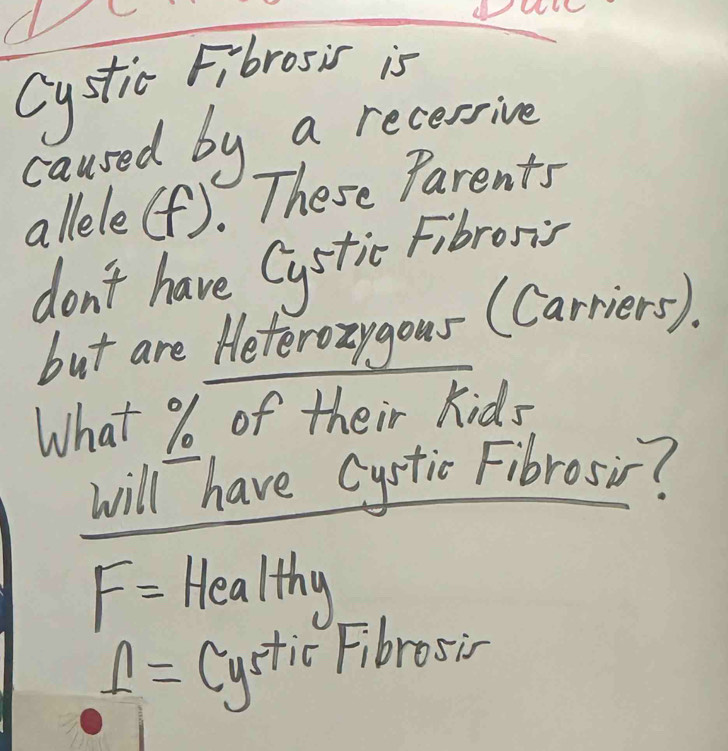 Cystic Fibrosis is
caused by a recessive
allele (f). These Parents
don't have Cystic Fibrosis
but are Heterozygous (Carriers).
What % of their Kids
will have Cystic Fibrosis?
F = Healthy
f = Cystic Fibrosis